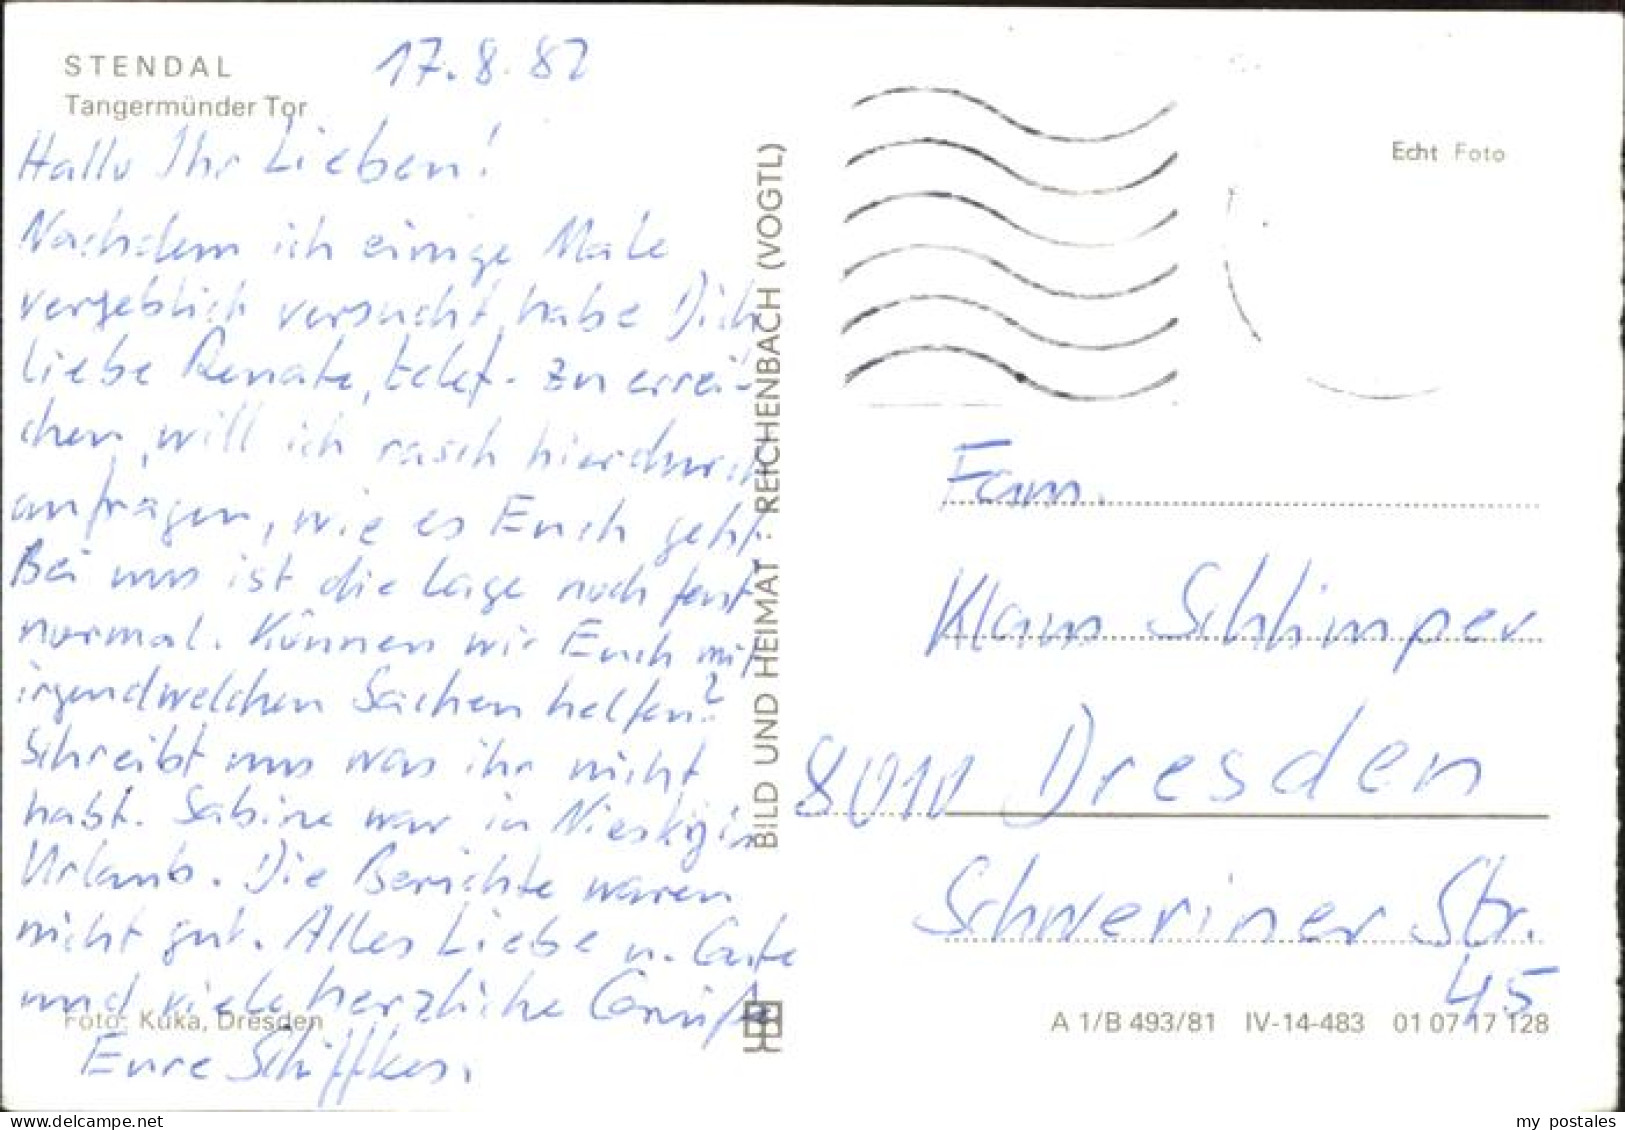 STENDAL
Tangermünder Tor
17.8.82
Hallo Ihr Lieben!
Nachdem ich einige Male
vergeblich versucht habe Dich
liebe Renate, telef. zu errei-
chen, will ich rasch hierdurch
anfragen, wie es Euch geht.
Bei uns ist die Lage noch fast
normal. Können wir Euch mit
irgendwelchen Sachen helfen?
Schreibt uns was ihr nicht
habt. Sabine war in Niesky in
Urlaub. Die Berichte waren
nicht gut. Alles Liebe u. Gute
und viele herzliche Grüße
Eure Schiffkes.
Foto: Kuka, Dresden
BILD UND HEIMAT · REICHENBACH (VOGTL)
Echt Foto
Fam.
Klaus Schlimper
8010 Dresden
Schweriner Str.
45
A 1/B 493/81 IV-14-483 01 07 17 128
my postales
delcampe.net